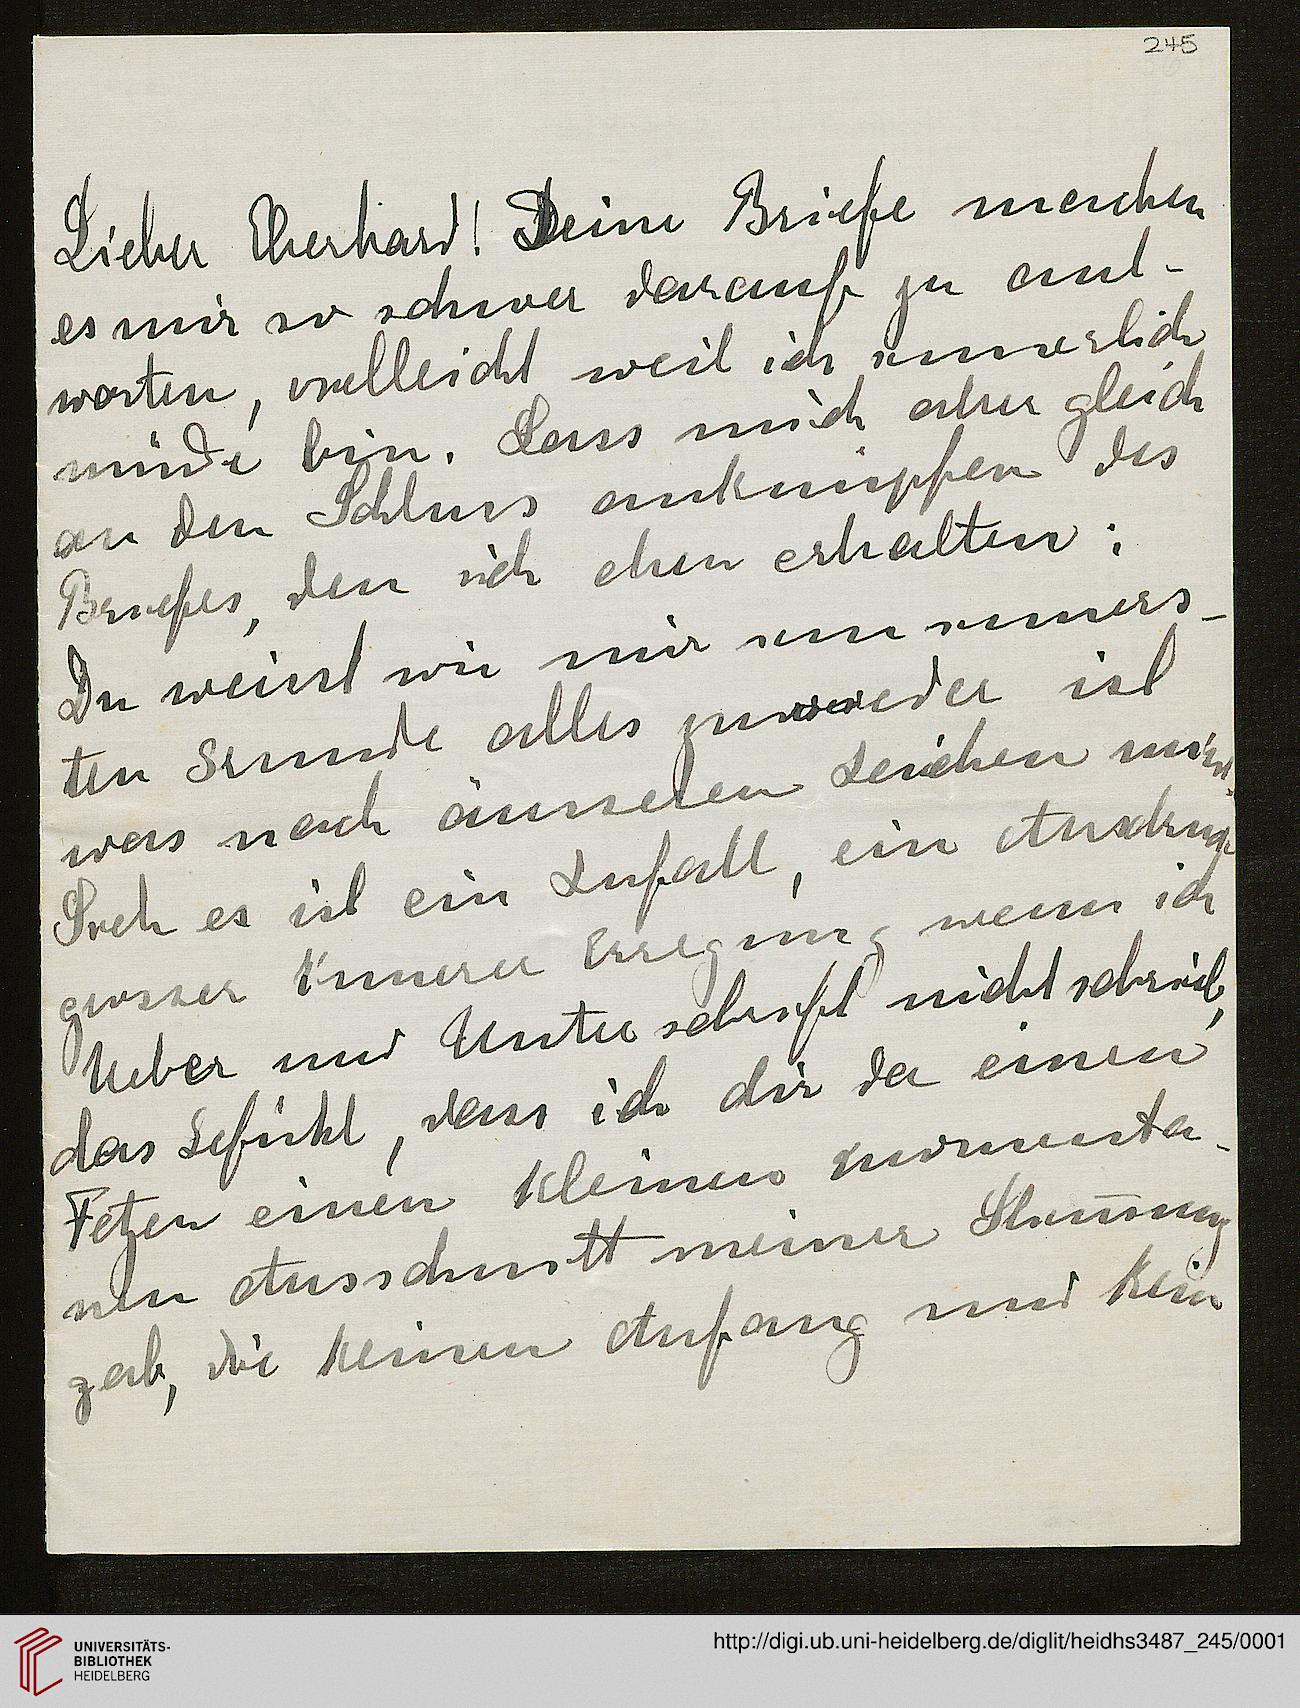 245
Lieber Eberhard! Deine Briefe machen
es mir so schwer darauf zu ant-
worten, vielleicht weil ich innerlich
müde bin. Lass mich aber gleich
an den Schluss anknüpfen des
Briefes, den ich eben erhalten:
Du weisst wie mir im inners-
ten Grunde alles zuwieder ist
was nach äusseren Zeichen
Sieh es ist ein Zufall, ein Ausdruck
grosser innerer Erregung wenn ich
Ueber und Unterschrift nicht schrieb,
das Gefühl, dass ich dir da einen
Fetzen einen kleinen momenta-
nen Ausschnitt meiner Stimmung
gab, die keinen Anfang und kein
UNIVERSITÄTS-
BIBLIOTHEK
HEIDELBERG
http://digi.ub.uni-heidelberg.de/diglit/heidhs3487_245/0001